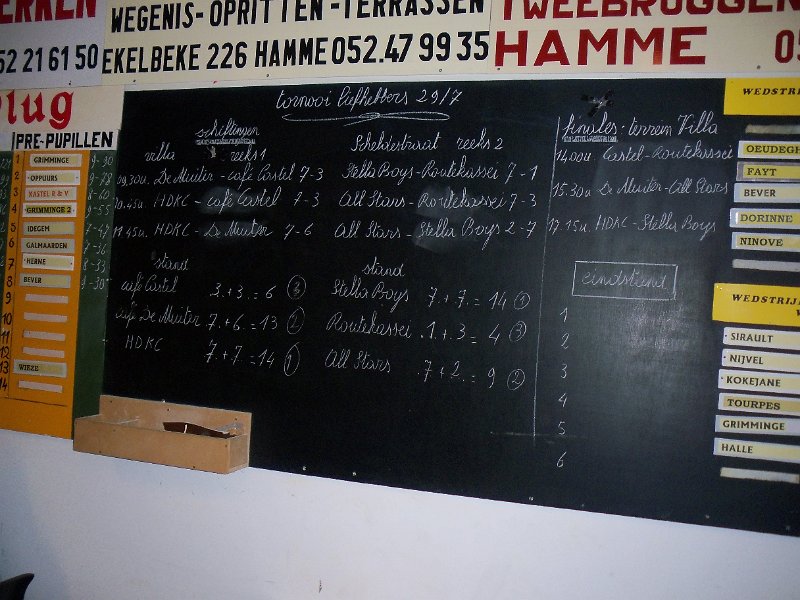 ERKEN
52 21 61 50
WEGENIS-OPRITTEN-TERRASSEN
EKELBEKE 226 HAMME 052.47 99 35
TWEEBRUGGEN
HAMME
lug
PRE-PUPILLEN
1 GRIMMINGE 9-30
2 OPPUURS 9-78
3 KASTEL R & V 8-60
4 GRIMMINGE 2 9-55
5 IDEGEM 7-47
6 GALMAARDEN 7-36
7 HERNE 8-33
8 BEVER 9-30
9
10
11
12
13 WIEZE
14
tornooi liefhebbers 29/7
schiftingen
villa reeks 1
09.30u. De Muiter - café Castel 7-3
10.45u. HDKC - café Castel 7-3
11.45u. HDKC - De Muiter 7-6
stand
café Castel 3.+3.= 6 3
café De Muiter 7.+6.= 13 2
HDKC 7.+7.= 14 1
Scheldestraat reeks 2
Stella Boys - Routekassei 7-1
All Stars - Routekassei 7-3
All Stars - Stella Boys 2-7
stand
Stella Boys 7.+7.= 14 1
Routekassei 1.+3.= 4 3
All Stars 7+2.= 9 2
finales - terrein Villa
14.00u. Castel - Routekassei
15.30u. De Muiter - All Stars
17.15u. HDKC - Stella Boys
eindstand
1
2
3
4
5
6
WEDSTRIJ
OEUDEGH
FAYT
BEVER
DORINNE
NINOVE
WEDSTRIJ
SIRAULT
NIJVEL
KOKEJANE
TOURPES
GRIMMINGE
HALLE